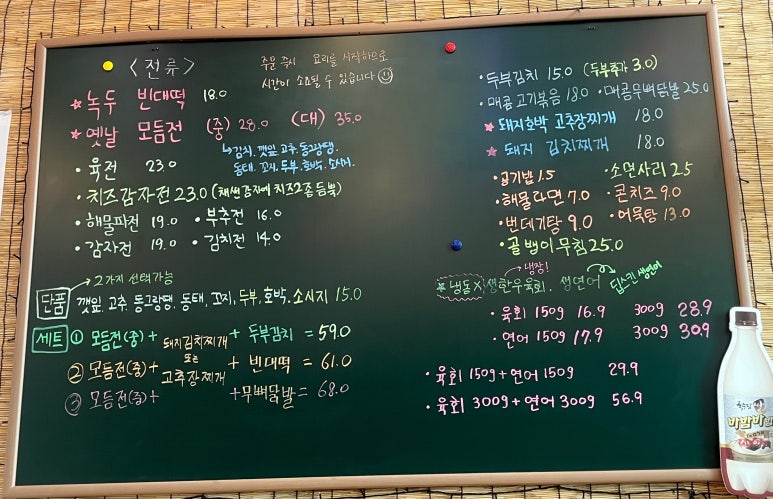 <전류>
주문 즉시 요리를 시작하므로
시간이 소요될 수 있습니다
★ 녹두 빈대떡 18.0
★ 옛날 모듬전 (중) 28.0 (대) 35.0
↳ 김치, 깻잎, 고추, 동그랑땡,
동태, 꼬지, 두부, 호박, 소시지.
• 육전 23.0
• 치즈감자전 23.0 (채썬감자에 치즈2종 듬뿍)
• 해물파전 19.0 • 부추전 16.0
• 감자전 19.0 • 김치전 14.0
단품 → 2가지 선택가능
깻잎, 고추, 동그랑땡, 동태, 꼬지, 두부, 호박, 소시지 15.0
세트 ① 모듬전(중) + 돼지김치찌개 + 두부김치 = 59.0
또는
② 모듬전(중) + 고추장찌개 + 빈대떡 = 61.0
③ 모듬전(중) + + 무뼈닭발 = 68.0
• 두부김치 15.0 (두부추가 3.0)
• 매콤고기볶음 18.0 • 매콤무뼈닭발 25.0
★ 돼지호박 고추장찌개 18.0
★ 돼지 김치찌개 18.0
• 공기밥 1.5 • 소면사리 2.5
• 해물라면 7.0 • 콘치즈 9.0
• 번데기탕 9.0 • 어묵탕 13.0
• 골뱅이무침 25.0
★ 냉동X 생한우육회, 생연어
냉장!
딥스킨 생연어
• 육회 150g 16.9 300g 28.9
• 연어 150g 17.9 300g 30.9
• 육회 150g + 연어 150g 29.9
• 육회 300g + 연어 300g 56.9